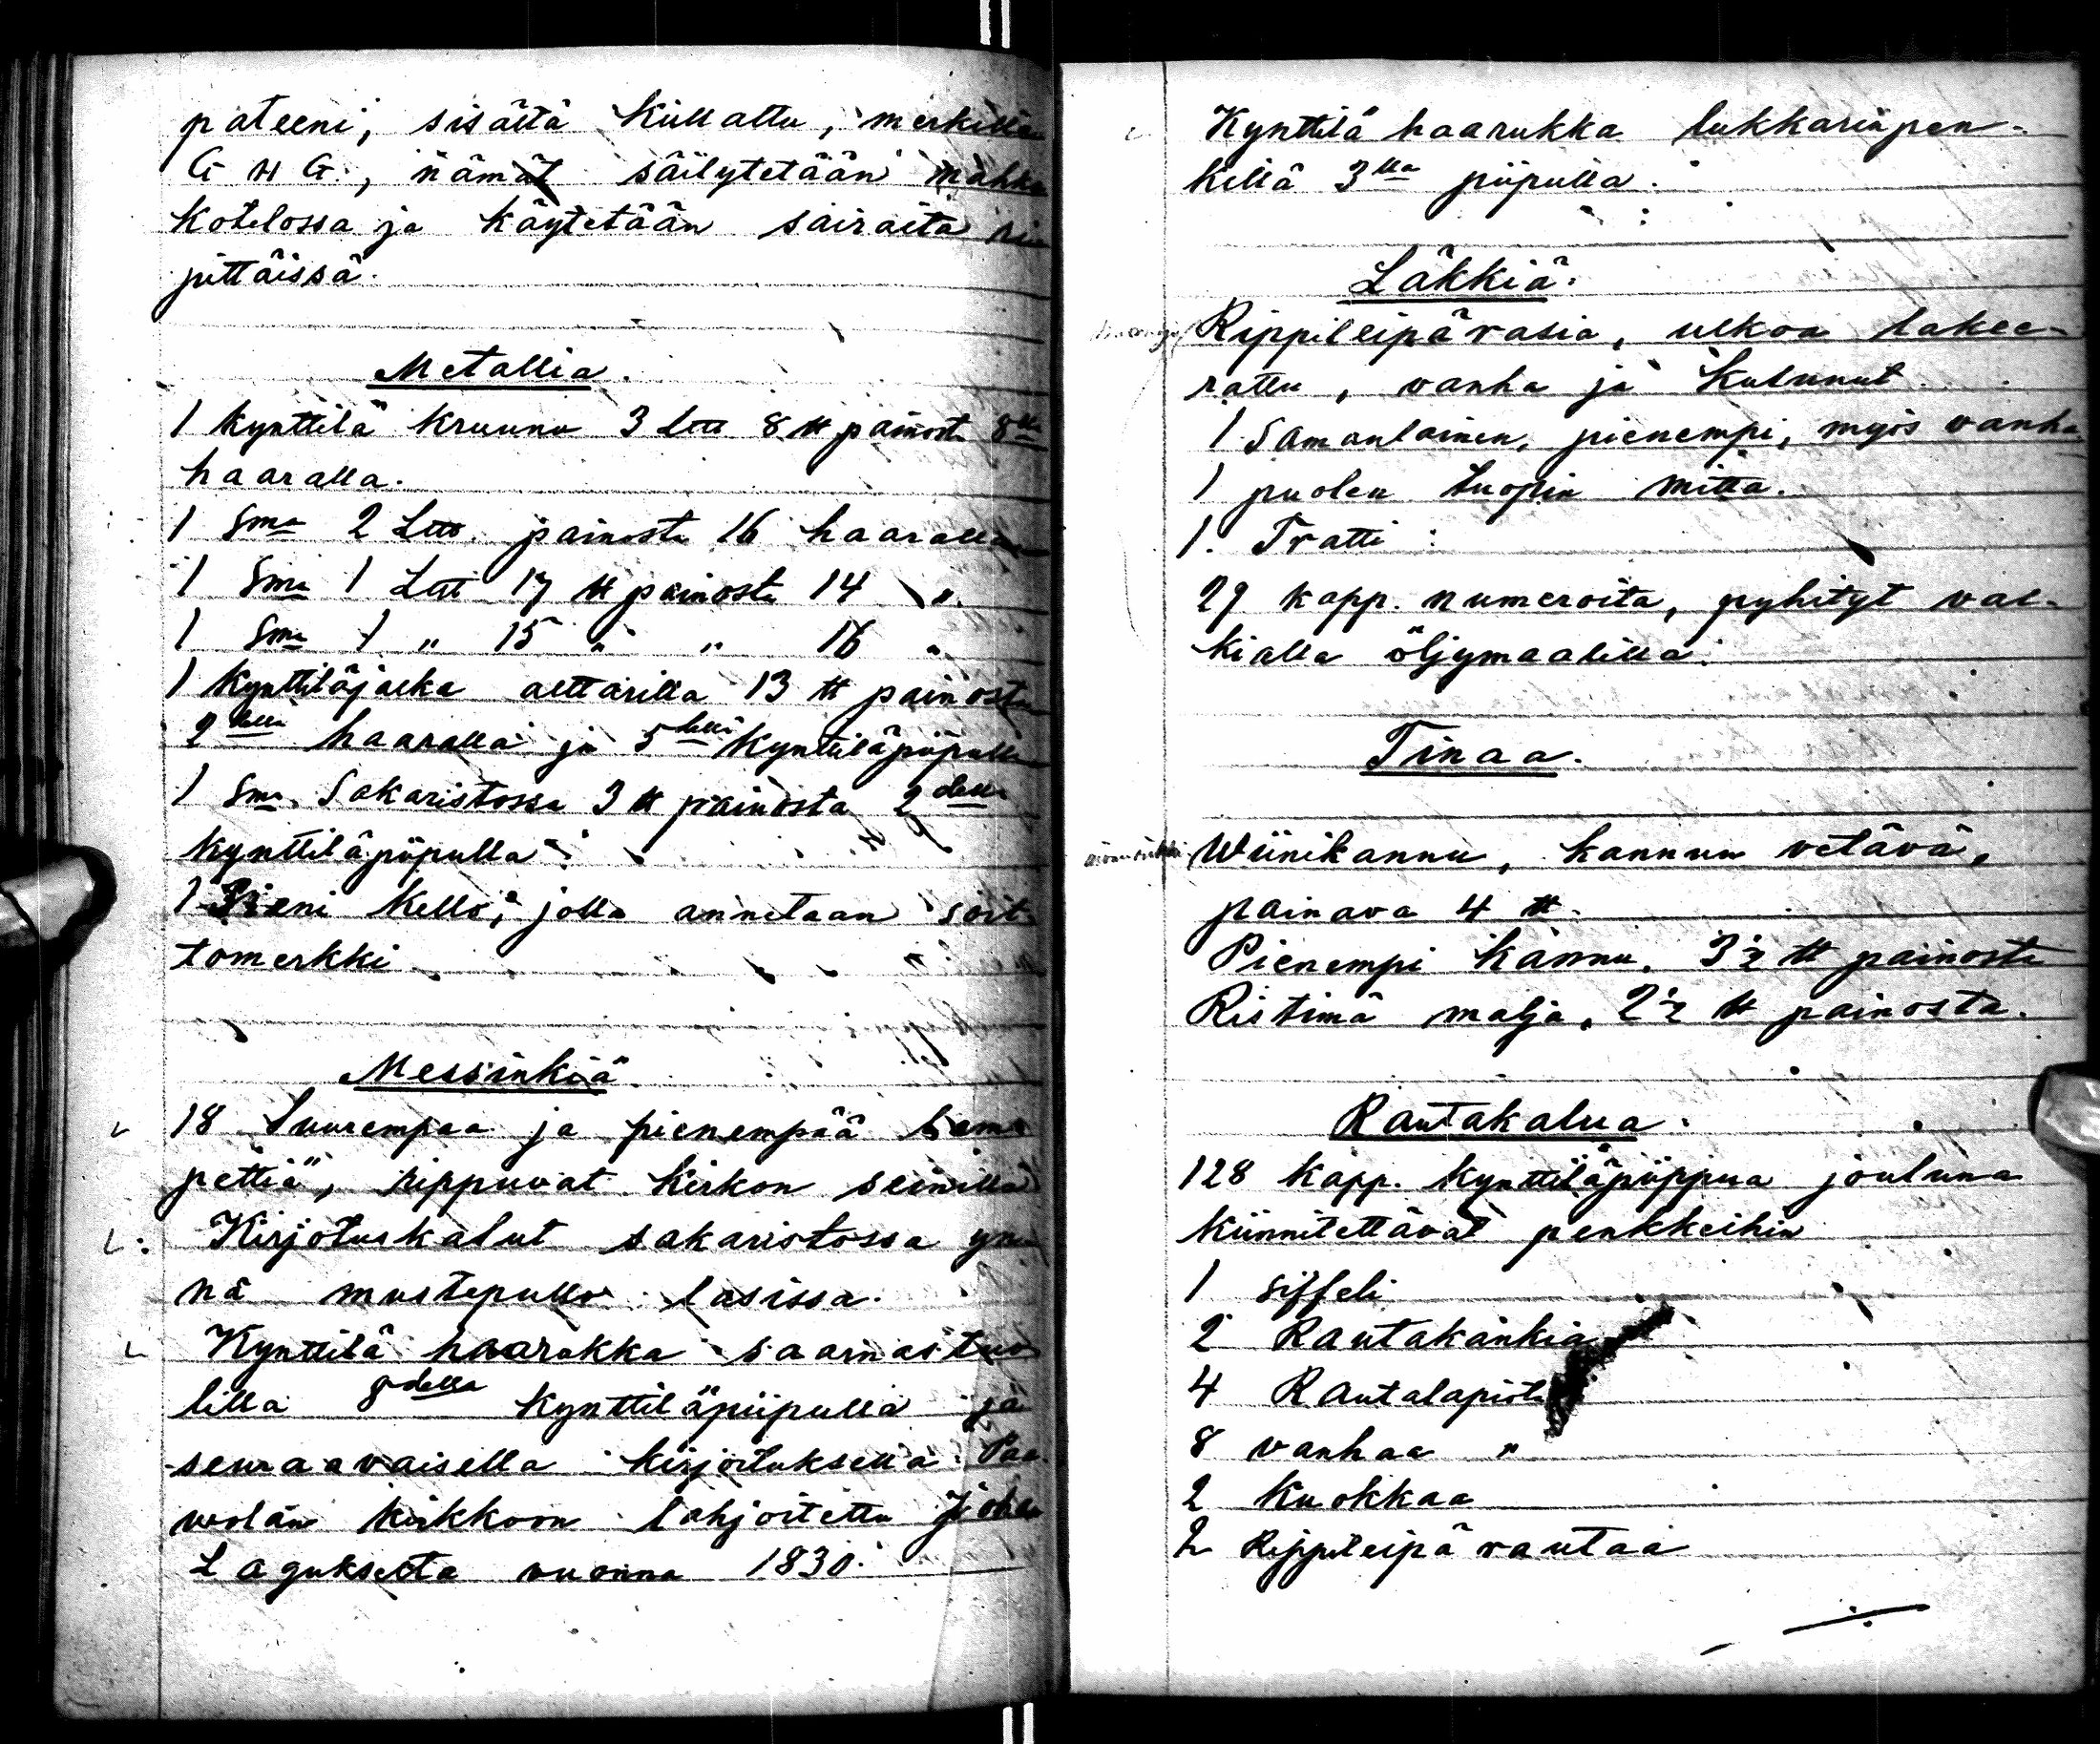 pateeni, sisältä kullattu, merkillä
G H G., nämät säilytetään nahka
kotelossa ja käytetään sairaita rip
pittäissä.
Metallia.
1 kynttilä kruunu 3 L℔ 8 ℔ painosta 8lla
haaralla.
1 Sma 2 L℔. painosta 16 haaralla
1 Sma 1 L℔ 17 ℔ painosta 14 „
1 Sma 1 „ 15 „ „ 16 „
1 Kynttiläjalka alttarilla 13 ℔ painosta
2lla haaralla ja 5lla kynttiläpiipulla
1 Sma. Sakaristossa 3 ℔ painosta 2della
kynttiläpiipulla.
1 Pieni Kello, jolla annetaan soit
tomerkki
Messinkiä
18 Suurempaa ja pienempää lam
pettiä, rippuvat kirkon seinillä
Kirjotuskalut sakaristossa yn
nä mustepullo lasissa.
Kynttilä haarukka saarnastuo
lilla 8della kynttiläpiipulla ja
seuraavaisella kirjoituksella: Paa
volan kirkkoon lahjoitettu Johan
Laguksesta vuonna 1830.
Kynttilä haarukka lukkarinpen-
killä 3lla piipulla.
Läkkiä.
Rippileipärasia, ulkoa lakee-
rattu, vanha ja kulunut.
1 Samanlainen, pienempi, myös vanha
1 puolen tuopin mitta.
1. Tratti
29 kapp. numeroita, pyhityt val-
kialla öljymaalilla.
Tinaa.
Wiinikannu, kannun vetävä,
painava 4 ℔.
Pienempi kannu, 3½ ℔ painosta
Ristimä malja, 2½ ℔ painosta.
Rautakalua.
128 Kapp. kynttiläpiippua jouluna
kiinnitettävät penkkeihin
1 siffeli
2 Rautakankia
4 Rautalapiota
8 vanhaa „
2 Kuokkaa
2 Rippileipä rautaa